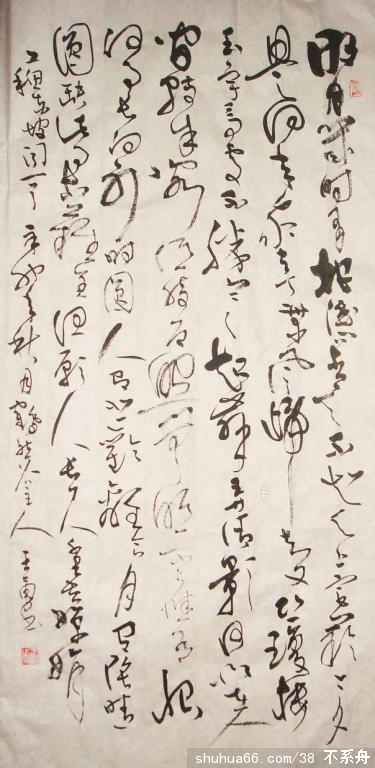 明月几时有把酒问青天不知天上宫阙今夕
是何年我欲乘风归去又恐琼楼
玉宇高处不胜寒起舞弄清影何似在人
间转朱阁低绮户照无眠不应有恨
何事长向别时圆人有悲欢离合月有阴晴
圆缺此事古难全但愿人长久千里共婵娟
东坡词一
月
主人
书
shuhua66.com/38 不系舟